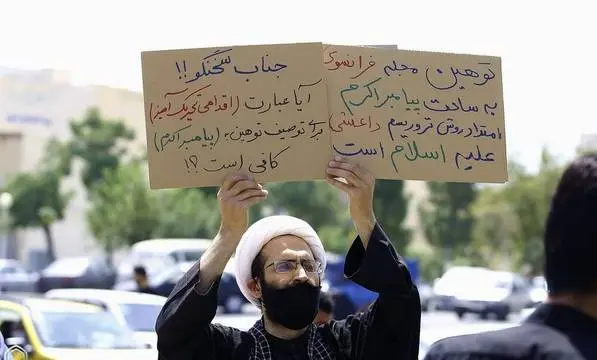 توهین مجله فرانسوی
به ساحت پیامبر اکرم
امتداد روش تروریسم داعشی
علیه اسلام است
جناب سخنگو!!
آیا عبارت (اقدامی تحریک آمیز)
برای توصیف توهین به (پیامبر اکرم)
کافی است ؟!